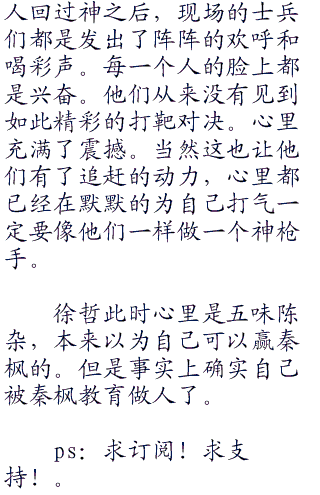 人回过神之后，现场的士兵
们都是发出了阵阵的欢呼和
喝彩声。每一个人的脸上都
是兴奋。他们从来没有见到
如此精彩的打靶对决。心里
充满了震撼。当然这也让他
们有了追赶的动力，心里都
已经在默默的为自己打气一
定要像他们一样做一个神枪
手。
徐哲此时心里是五味陈
杂，本来以为自己可以赢秦
枫的。但是事实上确实自己
被秦枫教育做人了。
ps：求订阅！求支
持！。